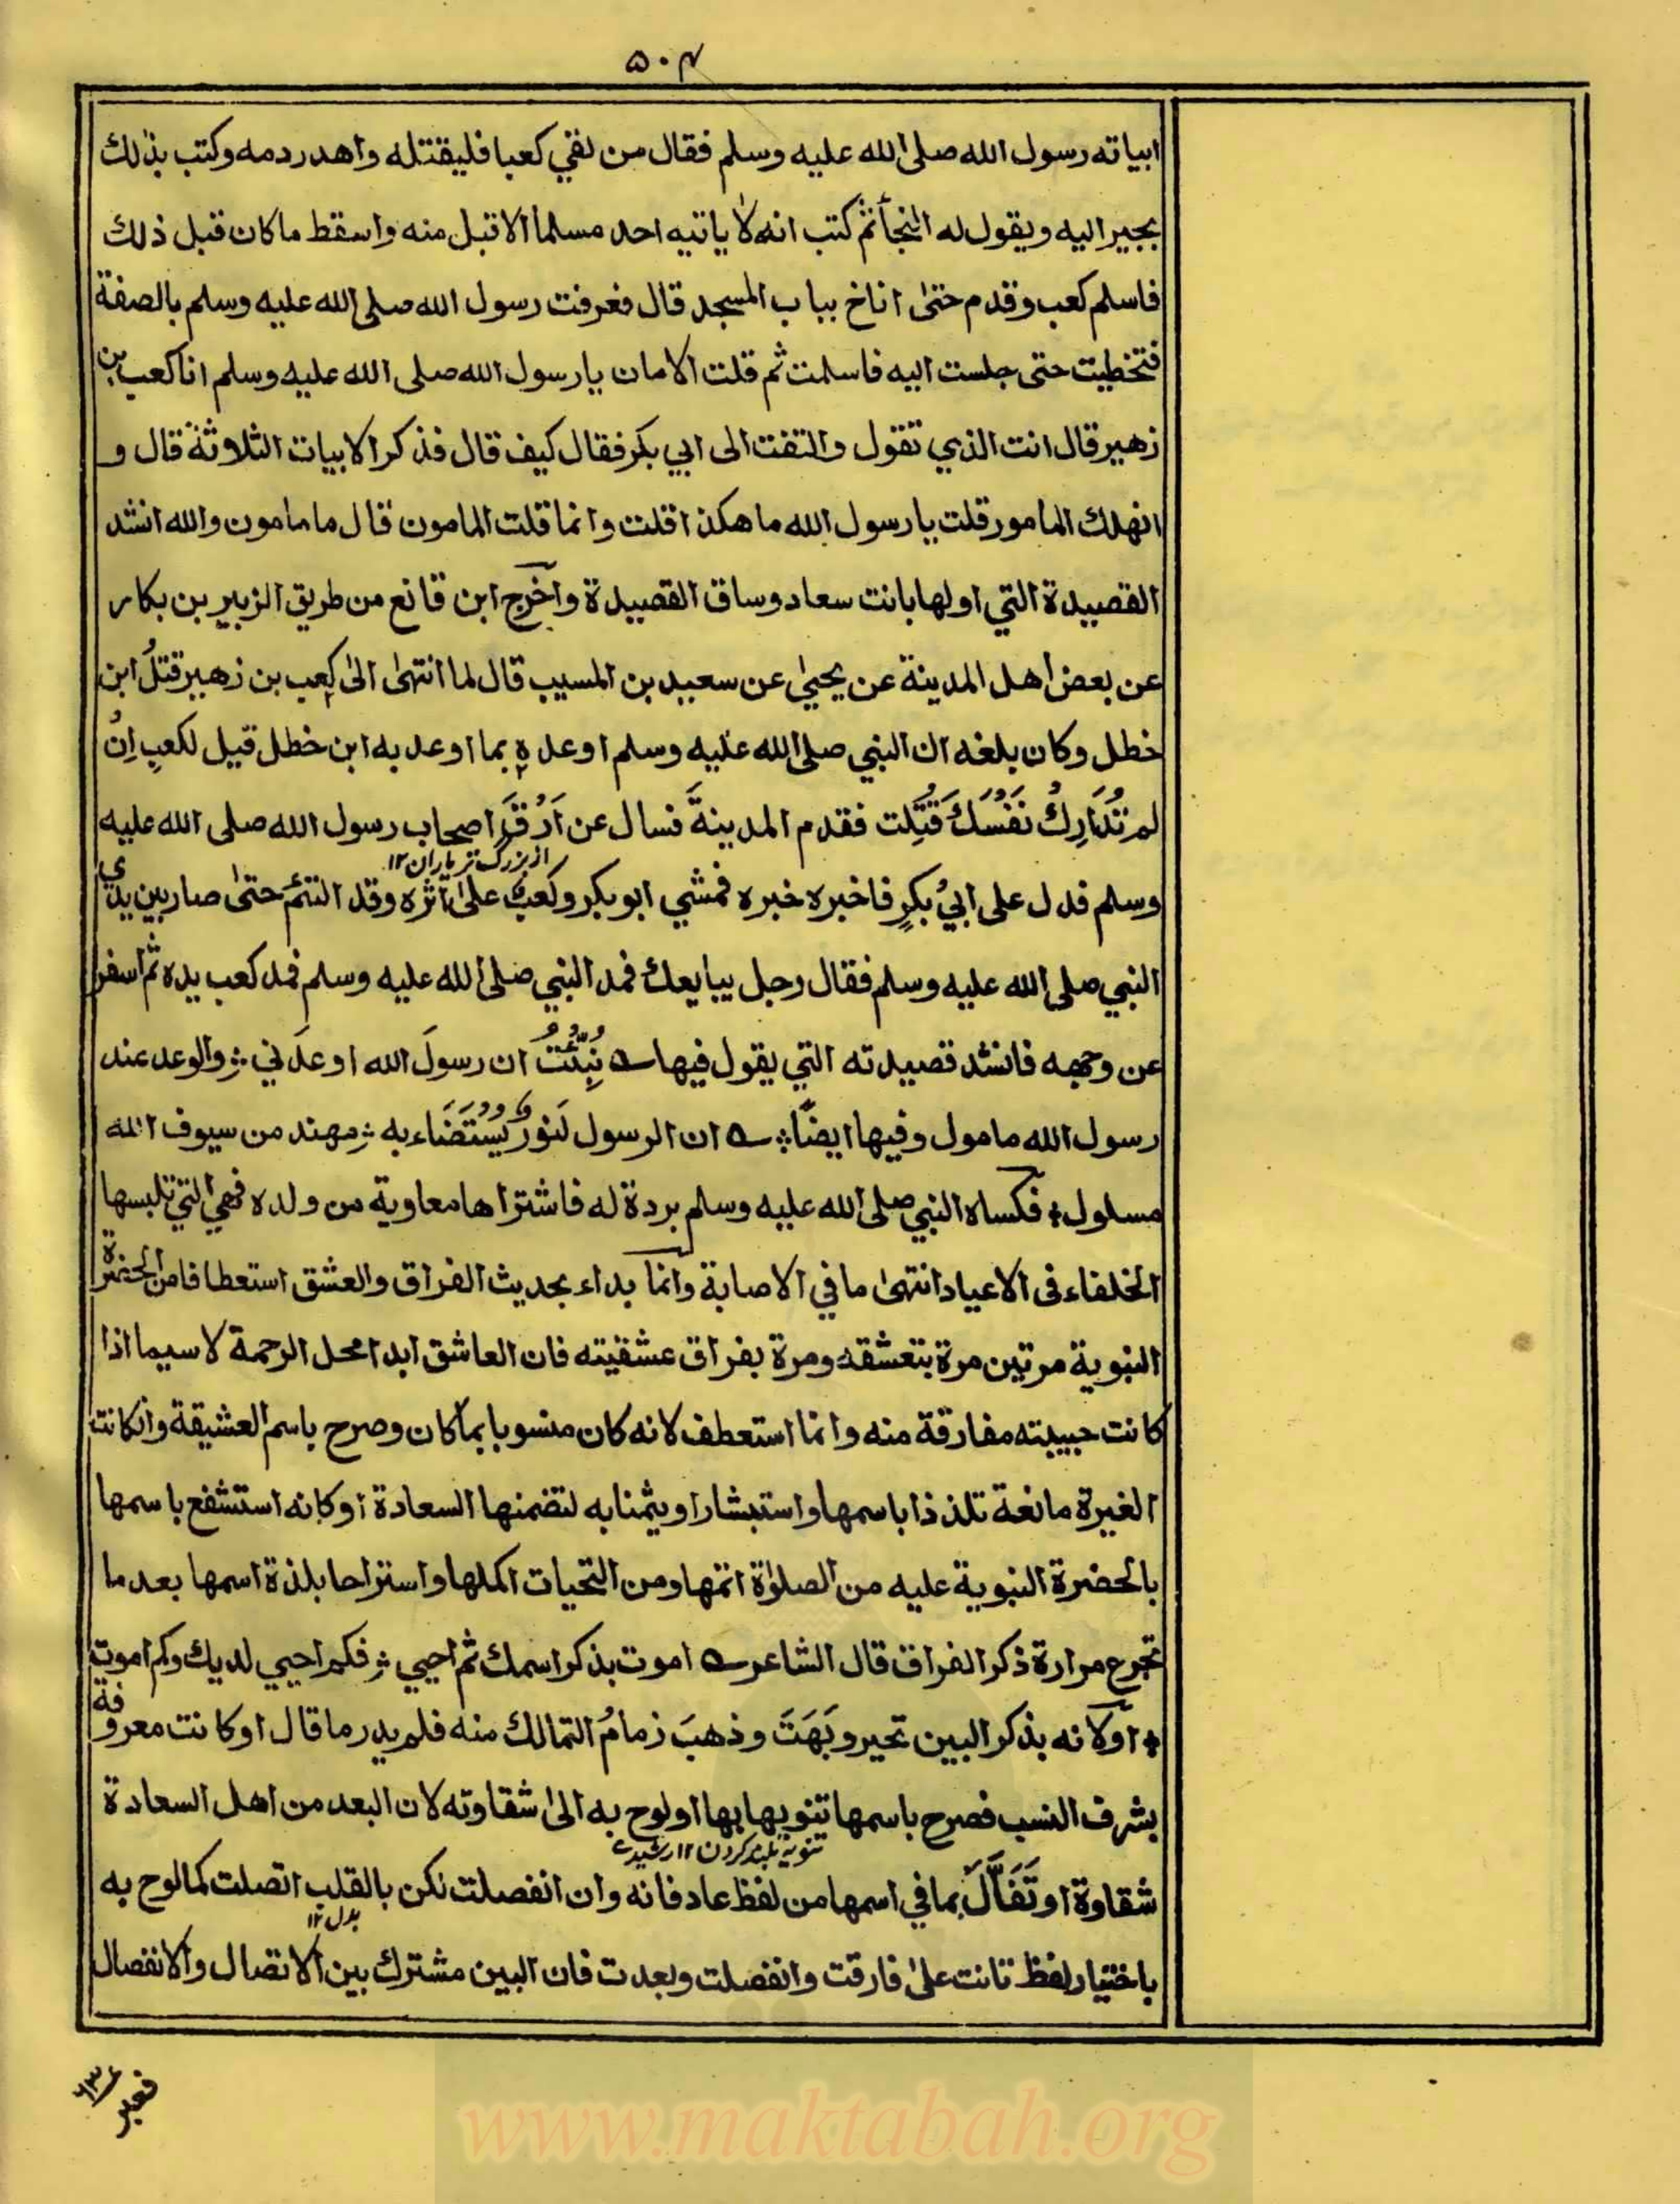 ۵۰۴
ابياته رسول الله صلى الله عليه وسلم فقال من لقي كعبا فليقتله واهدر دمه وكتب بذلك
بجير اليه ويقول له النجأ ثم كتب انه لا ياتيه احد مسلما الا قبل منه واسقط ما كان قبل ذلك
فاسلم كعب وقدم حتىٰ اناخ بباب المسجد قال فعرفت رسول الله صلى الله عليه وسلم بالصفة
فتخطيت حتى جلست اليه فاسلمت ثم قلت الامان يا رسول الله صلى الله عليه وسلم انا كعب بن
زهير قال انت الذي تقول والتفت الى ابي بكر فقال كيف قال فذكر الابيات الثلاثة قال و
انهلك المامور قلت يا رسول الله ما هكذا قلت وانما قلت المامون قال مامون والله انشد
القصيدة التي اولها بانت سعاد وساق القصيدة وآخرج ابن قانع من طريق الزبير بن بكار
عن بعض اهل المدينة عن يحيىٰ عن سعيد بن المسيب قال لما انتهىٰ الىٰ كعب بن زهير قتلُ ابن
خطل وكان بلغه ان النبي صلى الله عليه وسلم اوعده بما اوعد به ابن خطل قيل لكعبٍ اِنْ
لم تُدَارِكْ نَفْسَكَ قُتِّلت فقدم المدينةَ فسال عن اَرْقِّ اصحاب رسول الله صلى الله عليه
از بزرگ تر ياران ۱۲
وسلم فدل على ابيْ بكرٍ فاخبره خبره فمشي ابو بكر وكعب علىٰ اثره وقد التئم حتىٰ صار بين يدي
النبي صلى الله عليه وسلم فقال رجل يبايعك فمد النبي صلى الله عليه وسلم فمد كعب يده ثم اسفر
عن وجهه فانشد قصيدته التي يقول فيها نُبِّئْتُ ان رسولَ الله اوعدَني والوعد عند
رسول الله مامول وفيها ايضًا ان الرسول لَنورٌ يُسْتَضَاء به مهند من سيوف الله
مسلول فكساه النبي صلى الله عليه وسلم بردة له فاشتراها معاوية من ولده فهي التي تلبسها
الخلفاء فى الاعياد انتهىٰ ما في الاصابة وانما بداء بحديث الفراق والعشق استعطافا من الحضرة
النبوية مرتين مرة بتعشقه ومرة بفراق عشقيته فان العاشق ابدا محل الرحمة لا سيما اذا
كانت حبيبته مفارقة منه وانما استعطف لانه كان منسوبا بما كان وصرح باسم العشيقة وانكانت
الغيرة مانعة تلذذا باسمها واستبشارا ويثمنا به لتضمنها السعادة او كانه استشفع باسمها
بالحضرة النبوية عليه من الصلوٰة اتمها ومن التحيات اكملها واستراحا بلذة اسمها بعد ما
تجرع مرارة ذكر الفراق قال الشاعر اموت بذكر اسمك ثم احيي فكم احيي لديك وكم اموت
اوّلانه بذكر البين تحير وبَهَتَ وذهبَ زمامُ التمالك منه فلم يدر ما قال او كانت معروفة
بشرف النسب فصرح باسمها تنويها بها او لوح به الىٰ شقاوته لان البعد من اهل السعادة
تنويه بلند كردن ۱۲ رشيدي
شقاوة او تَفَأَّلَ بما في اسمها من لفظ عاد فانه وان انفصلت لكن بالقلب اتصلت كما لوح به
بدل ۱۲
باختيار لفظ تانت علىٰ فارقت وانفصلت وبعدت فان البين مشترك بين الاتصال والانفصال
فعبر
www.maktabah.org